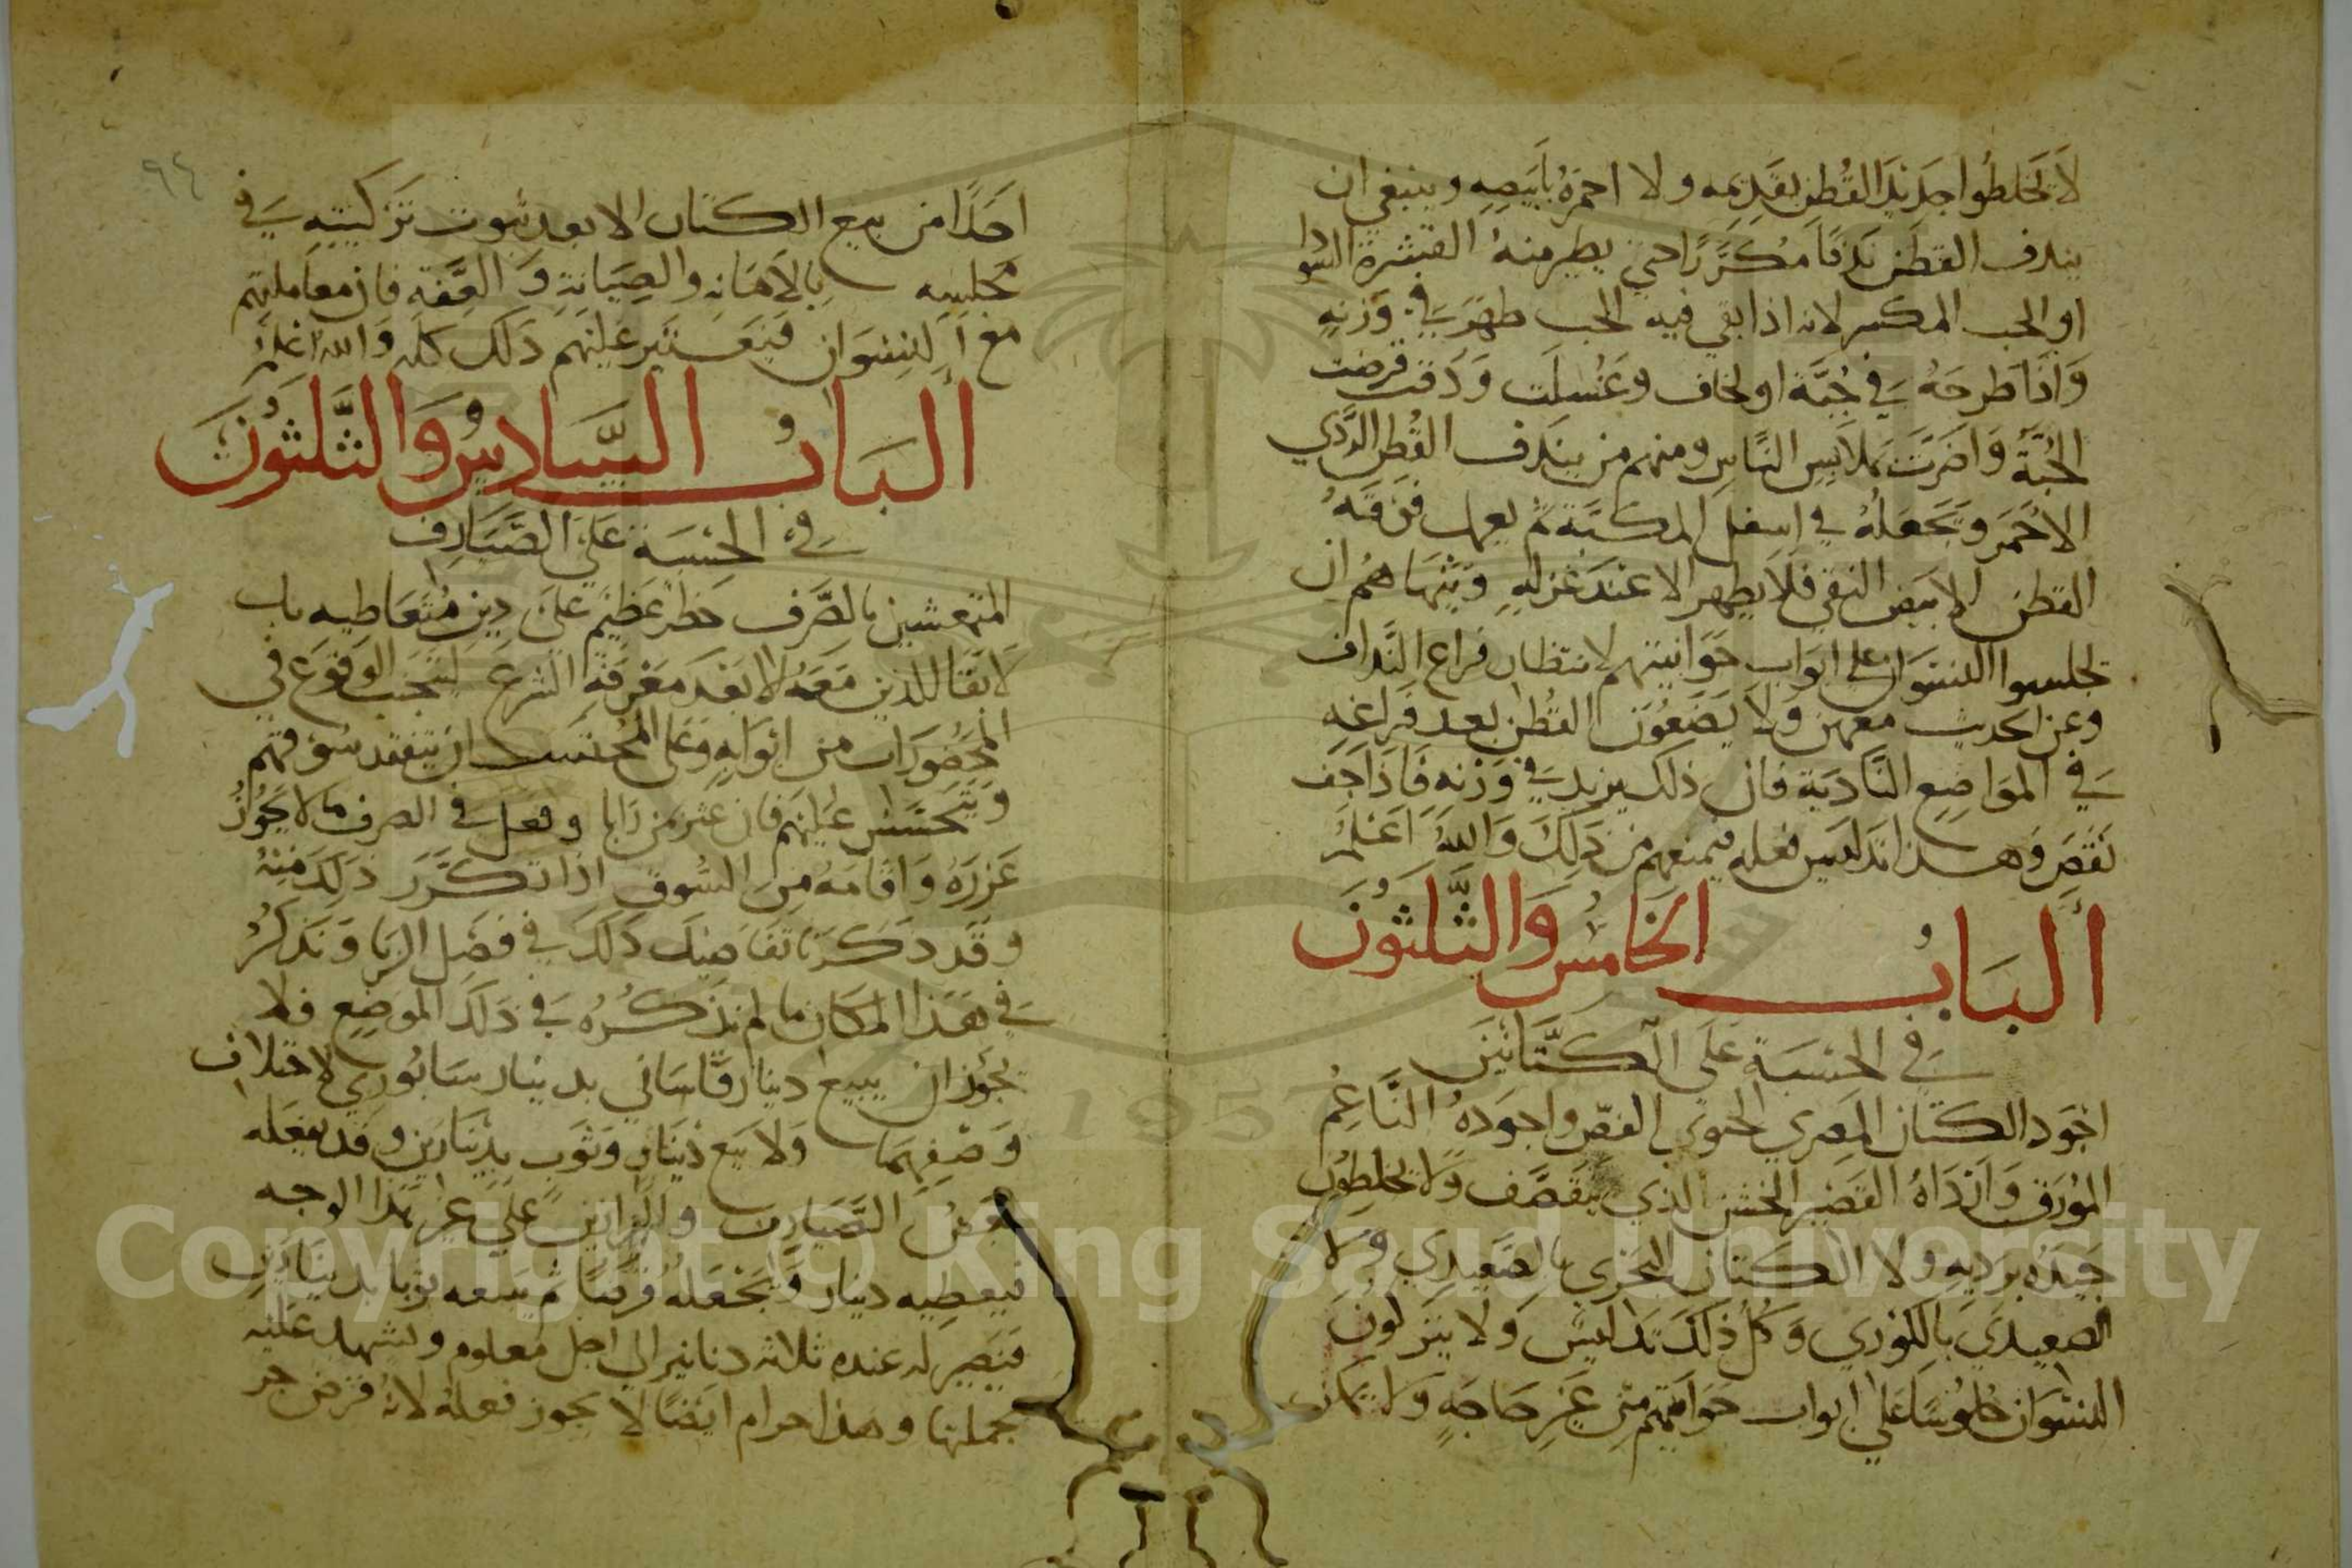 لا تخلطوا جديد القطن بقديمه ولا احمره بابيضه وينبغي ان
يندف القطن ندفا مكررا حتى يطير منه القشرة السودا
او الحب المكسر لانه اذا بقي فيه الحب ظهر في وزنه
واذا طرحه في جبة او لحاف وغسلت ودقت قرضت
الجبة واضرت بملابس الناس ومنهم من يندف القطن الردي
الاحمر ويجعله في اسفل المكبة ثم يعمل فوقه
القطن الابيض النقي فلا يظهر الا عند غزله وينهاهم ان
تجلسوا النسوان على ابواب حوانيتهم لانتظار فراغ النداف
وعن الحديث معهن ولا يضعون القطن بعد فراغه
في المواضع النادية فان ذلك يزيد في وزنه فاذا جف
نقص وهذا تدليس فعله فيمنعهم من ذلك والله اعلم
الباب الخامس والثلثون
في الحسبة على الكتانين
اجود الكتان المصري الجوي الغض واجوده الناعم
المورق وارداه القصير الخشن الذي يتقصف ولا تخلطون
جيده برديه ولا الكتان البحري بالصعيدي ولا
الصعيدي بالكوري وكل ذلك تدليس ولا يتركون
النسوان جلوسا على ابواب حوانيتهم من غير حاجة ولا يمكن
٩٤
احدا من بيع الكتان الا بعد ثبوت تزكيته في
مجلسه بالامانه والصيانة والعفه فان معاملتهم
مع النسوان فيعتبر عليهم ذلك كله والله اعلم
الباب السادس والثلثون
في الحسبة على الصيارف
المتعشين بالصرف خطر عظيم على دين متعاطيه باب
لا بقا للدين معه الا بعد معرفة الشرع لتجنب الوقوع في
المحضورات من ابوابه وعلى المحتسب ان يتفقد سوقهم
ويتحسس عليهم فان عثر من رابا وفعل في الصرف ما لا يجوز
عزره واقامه من السوق اذا تكرر ذلك منه
وقد ذكرنا تفاصيل ذلك في فصل الربا ونذكر
في هذا المكان ما لم نذكره في ذلك الموضع فلا
يجوز ان يبيع دينار قاساني بدينار سابوري لاختلاف
وصفهما ولا بيع دينار وثوب بدينارين وقد يفعله
بعض الصيارف والبزازين على غير هذا الوجه
فيعطيه دينار ويجعله قرضا ثم يبيعه ثوبا بدينارين
فيصير له عنده ثلاثه دنانير الى اجل معلوم ويشهد عليه
بجملتها وهذا حرام ايضا لا يجوز فعله لانه قرض جر
Copyright © King Saud University
1957